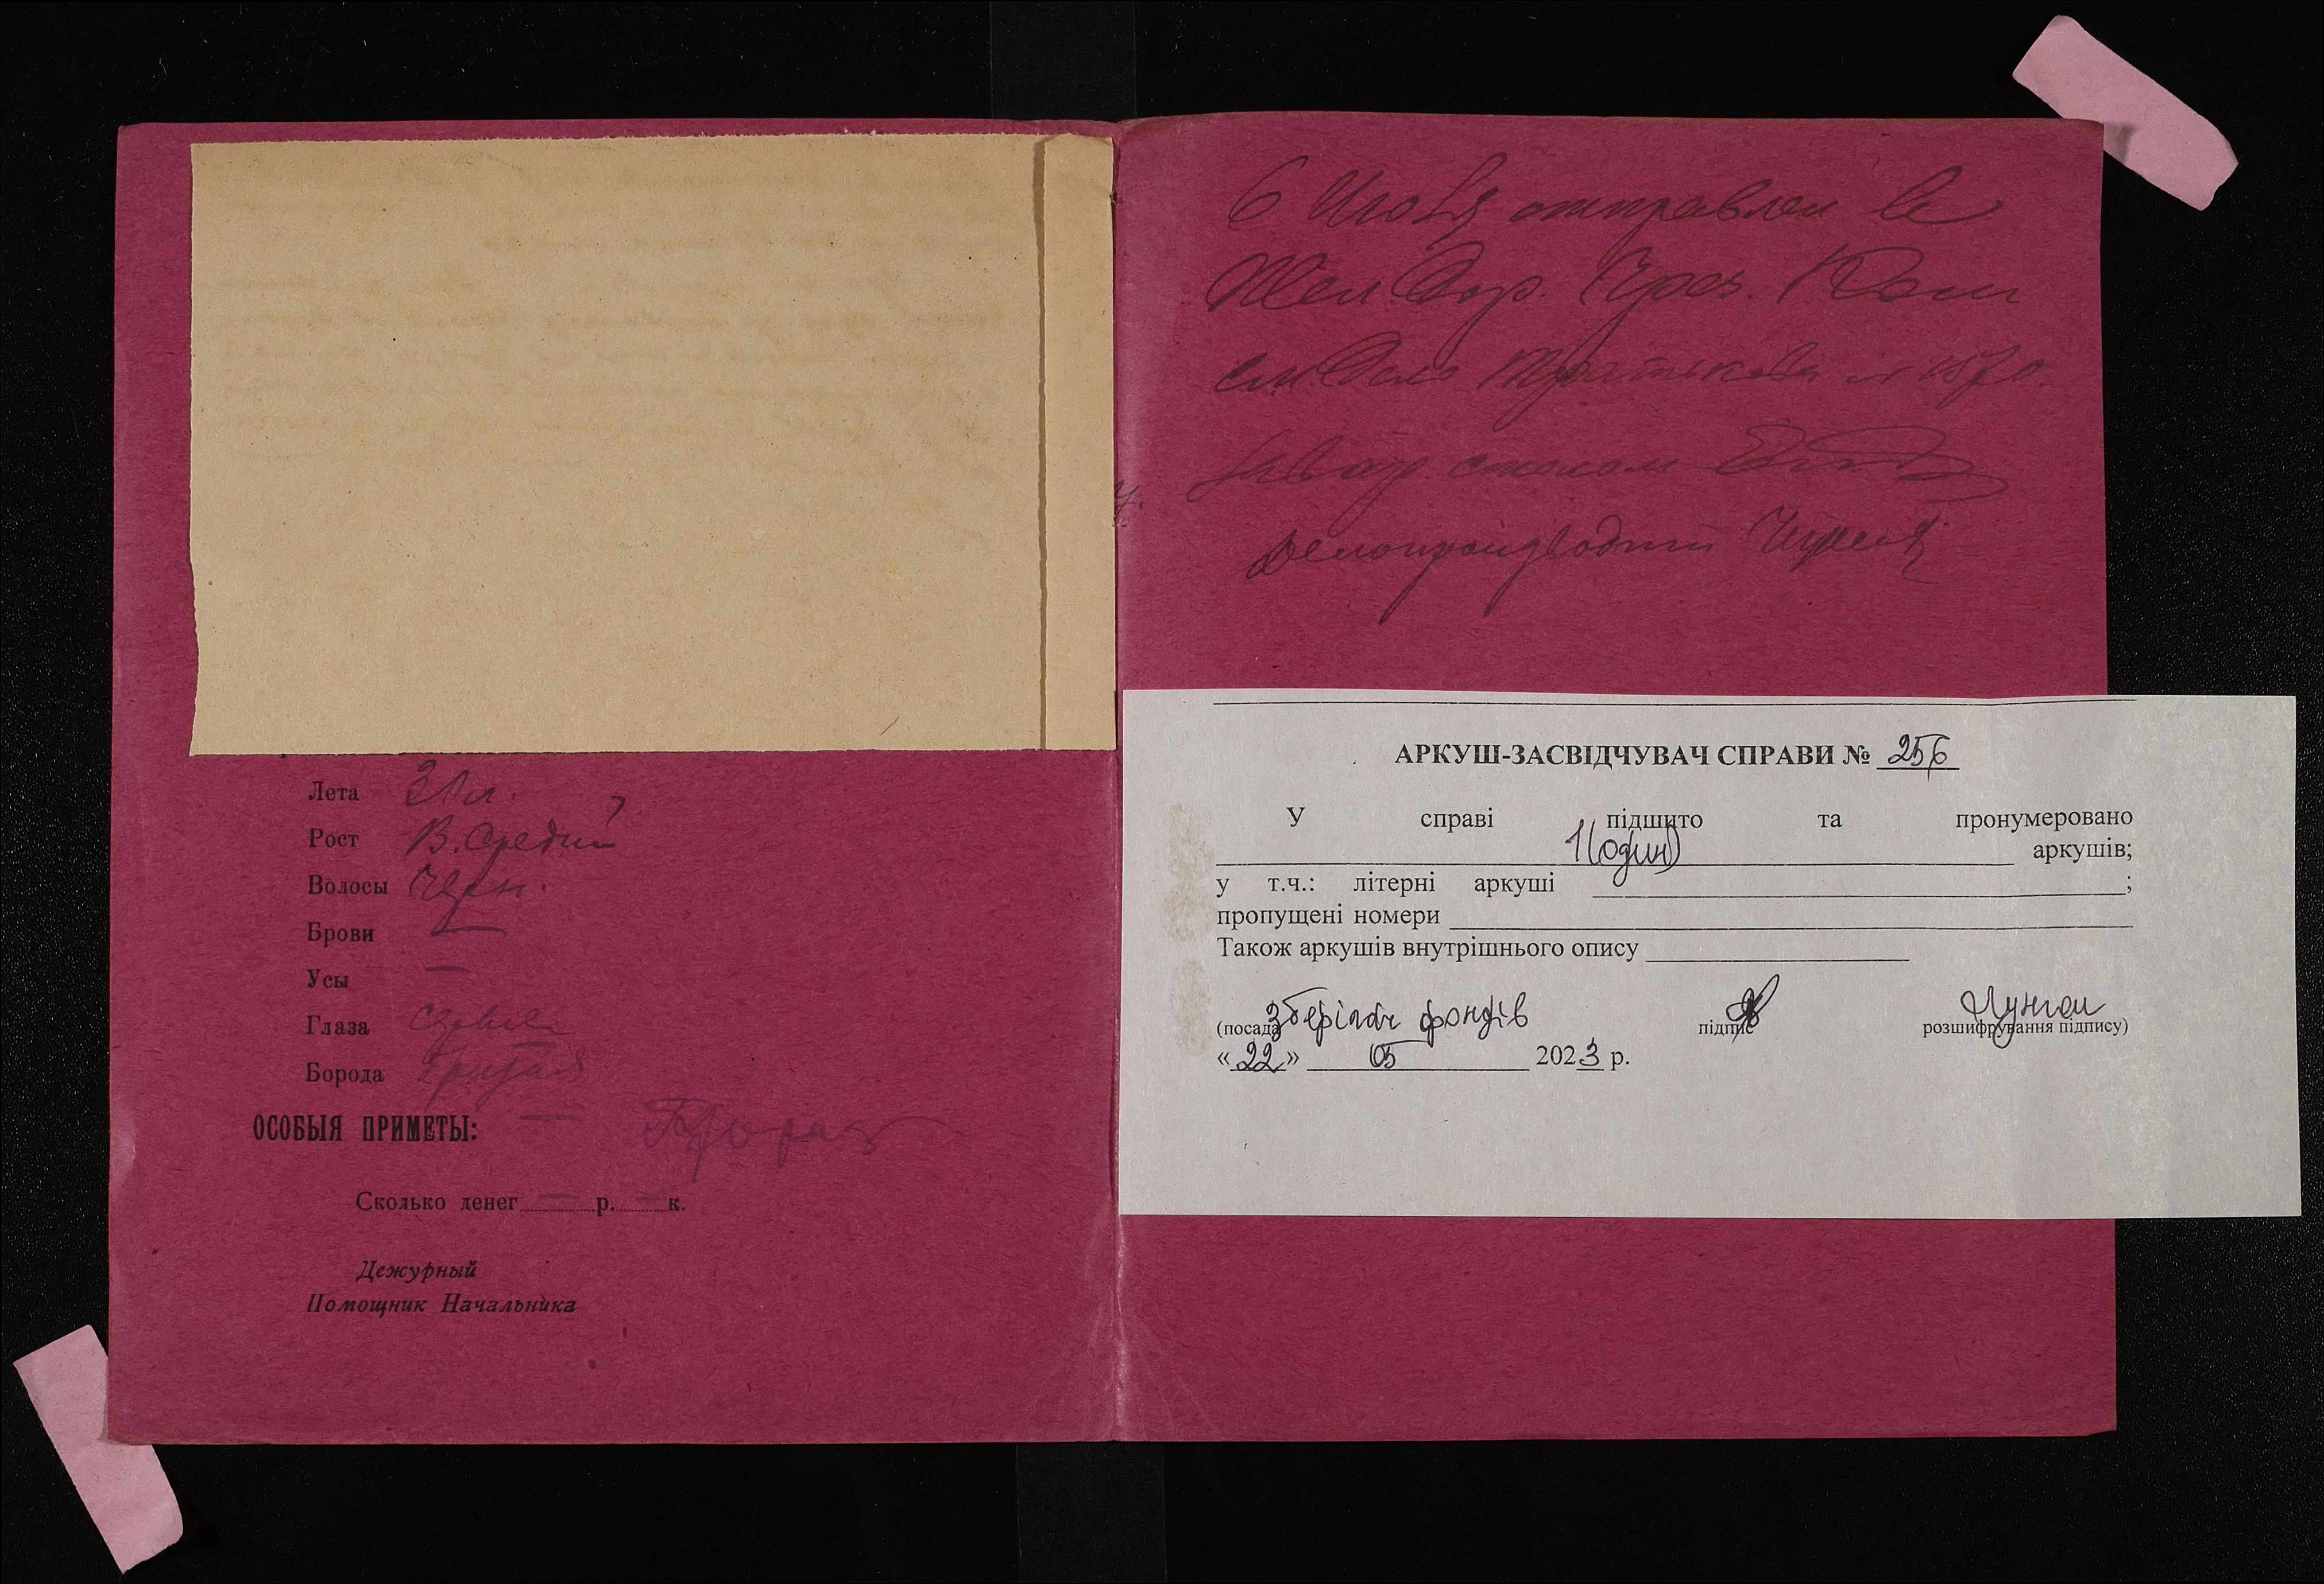 Лета 31 л.
Рост В. Средний
Волосы Черн.
Брови —
Усы —
Глаза
Борода бритая
ОСОБЫЯ ПРИМЕТЫ: —
Сколько денег — р. — к.
Дежурный
Помощник Начальника
6 Июля отправлен в
Жел Дор. Чрез. Ком
см. Дело
Завед. столом
Делопроизводит
АРКУШ-ЗАСВІДЧУВАЧ СПРАВИ № 256
У справі підшито та пронумеровано
1 (один) аркушів;
у т.ч.: літерні аркуші ;
пропущені номери
Також аркушів внутрішнього опису
Зберігач фондів
(посада підпис розшифрування підпису)
«22» 05 2023 р.